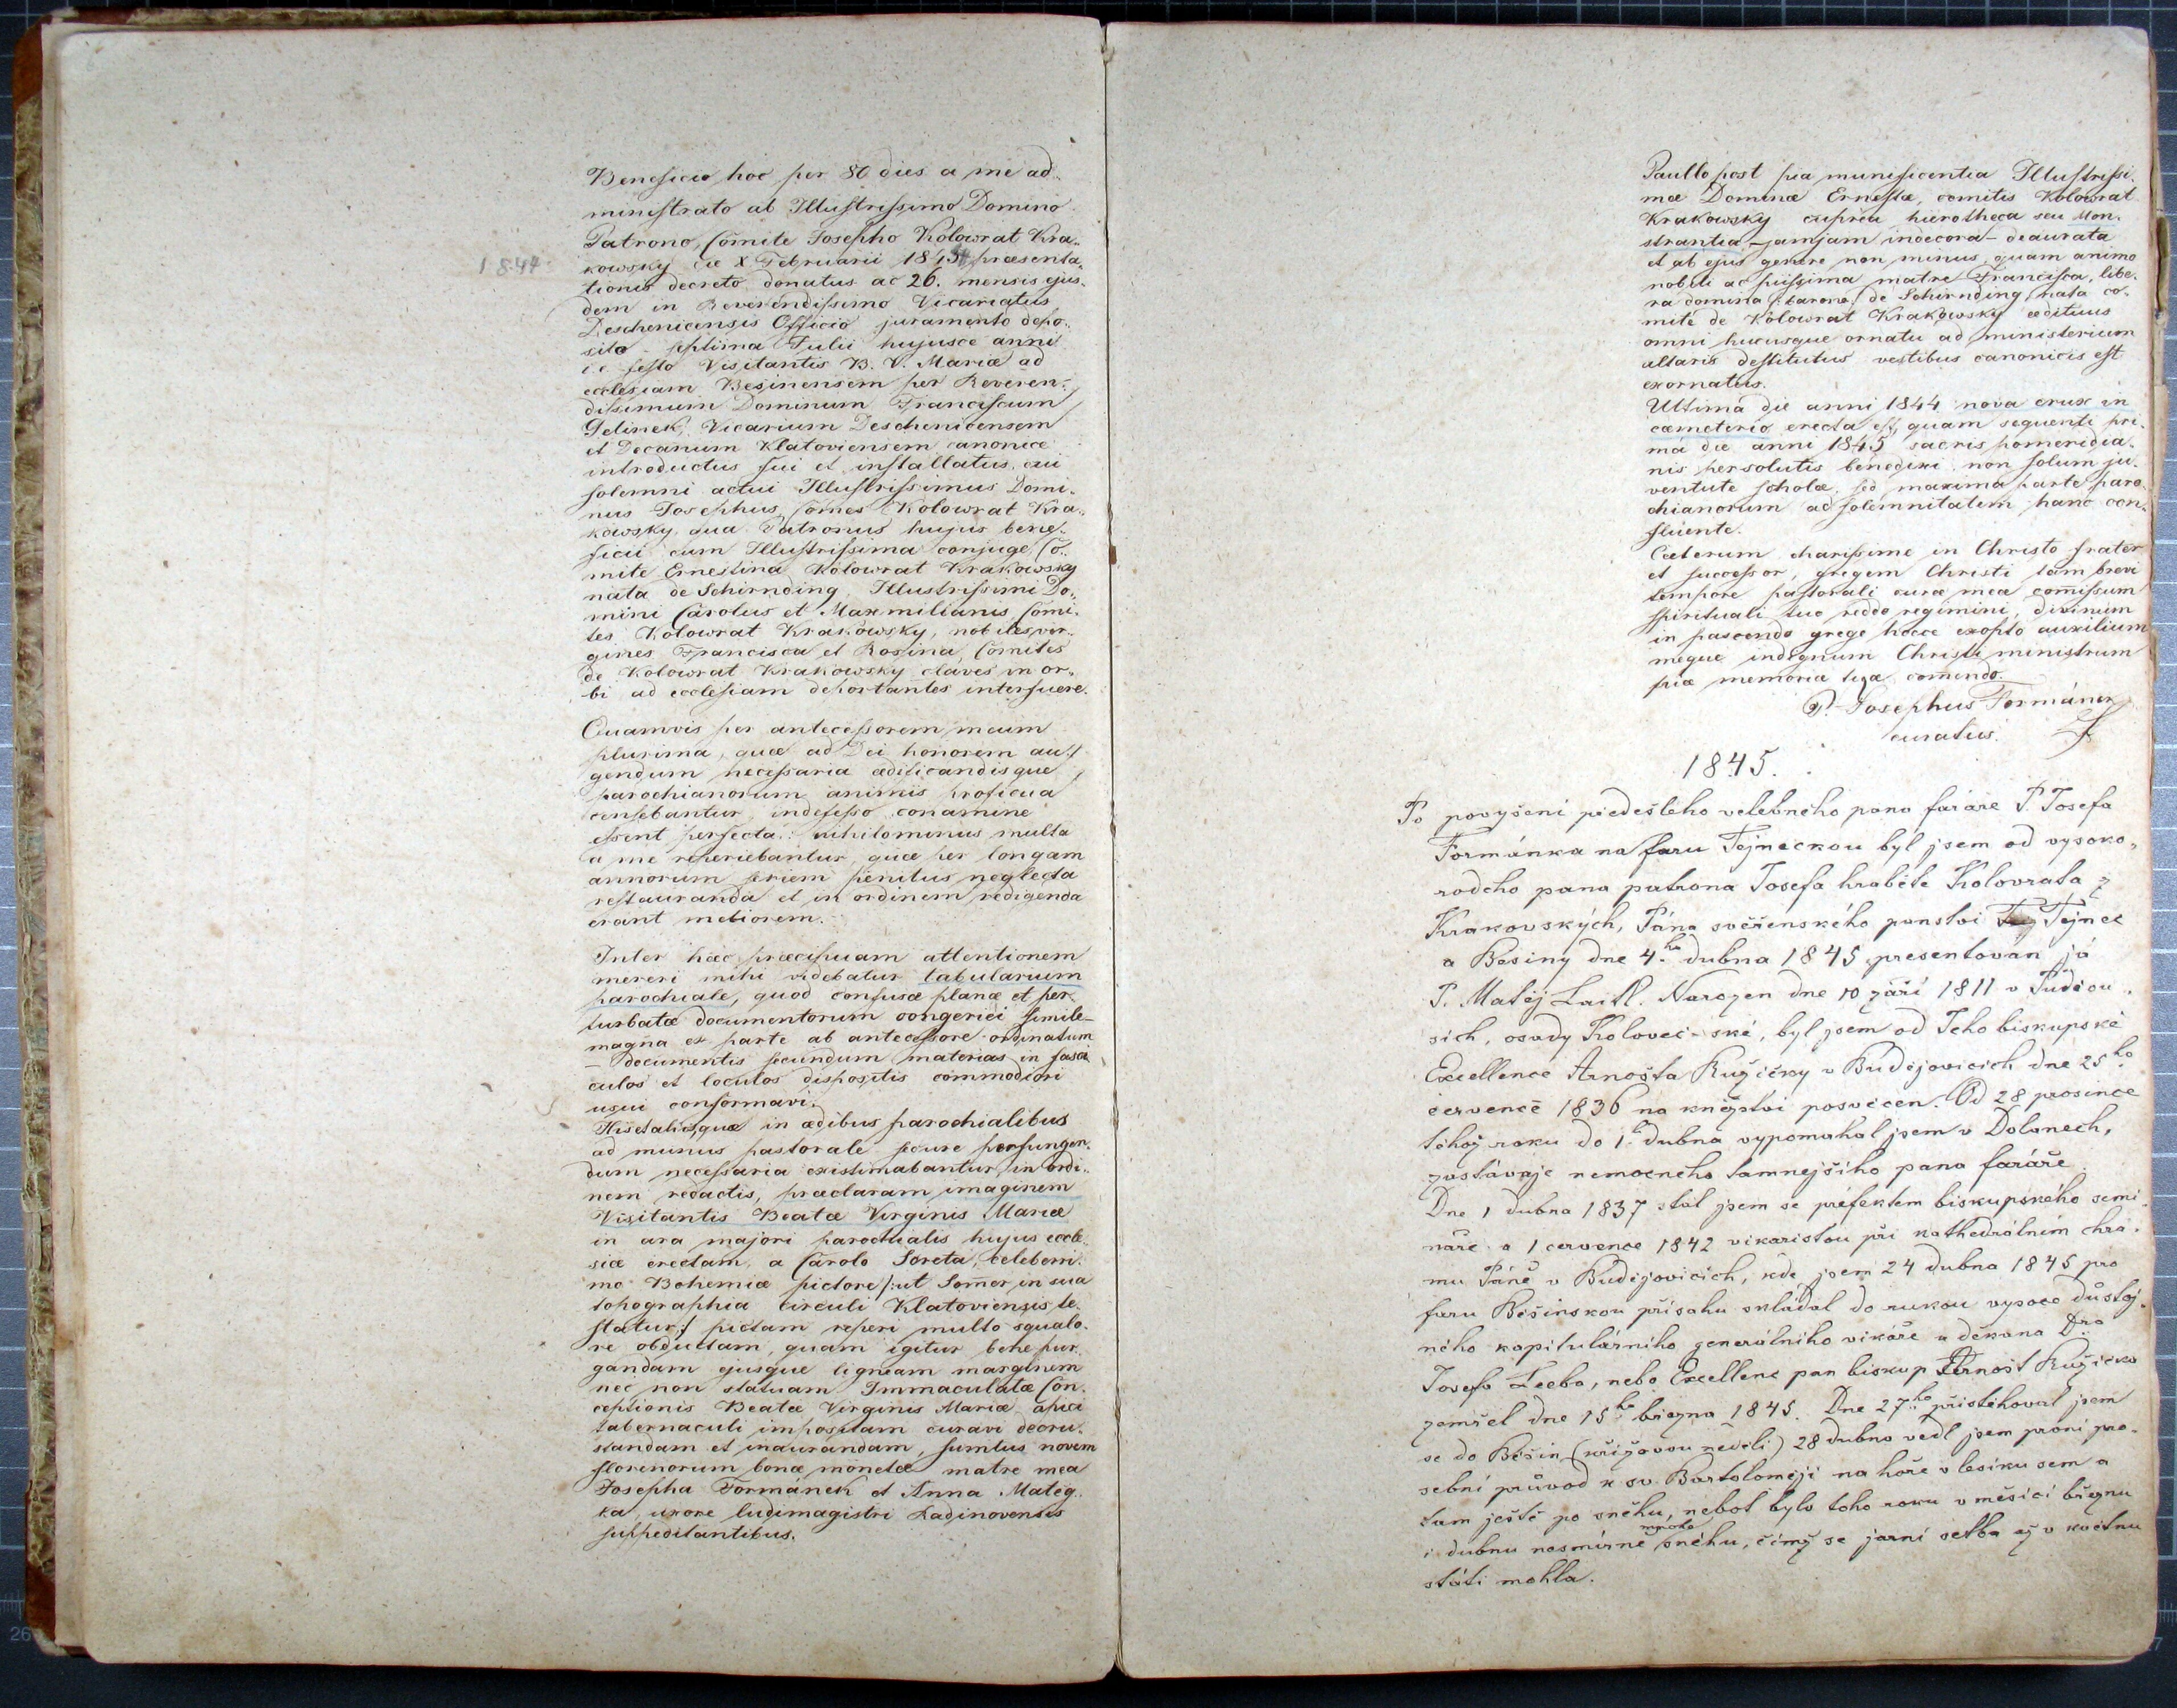 Beneficio hoc per 80 dies a me ad„
ministrato ab Illustrissimo Domino
Patrono, Comite Josepho Kolowrat Kra„
1844
kowsky die X Februarii 1844 praesenta„
tionis decreto donatus ac 26. mensis ejus„
dem in Reverendissimo Vicariatus
Deschenicensis Officio juramento depo„
sito – septima Julii hujusce anni
i. e. festo Visitantis B. V. Mariæ ad
ecclesiam Besinensem per Reveren„
dissimum Dominum Franciscum
Jelinek, Vicarium Deschenicensem
et Decanum Klatoviensem canonice
introductus fui et installatus, cui
solemni actui Illustrissimus Domi„
nus Josephus Comes Kolowrat Kra„
kowsky, qua Patronus hujus bene„
ficii cum Illustrissima conjuge Co„
mite Ernestina Kolowrat Krakowsky
nata de Schirnding, Illustrissimi Do„
mini Carolus et Maxmilianus Comi„
tes Kolowrat Krakowsky, nobiles vir„
gines Francisca et Rosina Comites
de Kolowrat Krakowsky claves in or„
bi ad ecclesiam deportantes interfuere.
Quamvis per antecessorem meum
plurima, quæ ad Dei honorem au„
gendum necessaria ædificandisque
parochianorum animis proficua
censebantur, indefesso conamine
essent perfecta: nihilominus multa
a me reperiebantur, quæ per longam
annorum seriem penitus neglecta
restauranda et in ordinem redigenda
erant meliorem.
Inter hæc præcipuam attentionem
mereri mihi videbatur tabularium
parochiale, quod confusæ planæ et per„
turbatæ documentorum congeriei simile –
magna ex parte ab antecessore ordinatum
– documentis secundum materias in fasci
culos et loculos dispositis commodiori
usui conformavi.
Hisce aliisque in ædibus parochialibus
ad munus pastorale secure perfungen„
dum necessaria existimabantur, in ordi„
nem redactis, præclaram imaginem
Visitantis Beatæ Virginis Mariæ
in ara majori parochialis hujus eccle„
siæ erectam, a Carolo Screta, celeberri„
mo Bohemiæ pictore /: ut Somer in sua
topographia circuli Klatoviensis te„
statur :/ pictam reperi multo squalo„
re obductam, quam igitur bene pur„
gandam ejusque ligneam marginem
nec non statuam Immaculatæ Con„
ceptionis Beatæ Virginis Mariæ apici
tabernaculi impositam curavi decru„
standam et inaurandam, sumtus novem
florenorum bonæ monetæ matre mea
Josepha Formanek et Anna Mateg„
ka, uxore ludimagistri Ladinovensis
suppeditantibus.
Paullo post pia munificentia Illustrissi„
mæ Dominæ Ernestæ, comitis Kolowrat
Krakowsky cuprea hierotheca seu Mon„
strantia – jamjam indecora – deaurata
et ab ejus genere non minus, quam animo
nobili ac piissima matre Francisca, libe„
ra domina /: barone :/ de Schirnding, nata co„
mite de Kolowrat Krakowsky ædituus
omni hucusque ornatu ad ministerium
altaris destitutus vestibus canonicis est
exornatus.
Ultima die anni 1844 nova crux in
cæmeterio erecta est, quam sequenti pri„
ma die anni 1845 sacris pomeridia„
nis persolutis benedixi non solum ju„
ventute scholæ, sed maxima parte paro„
chianorum ad solemnitatem hanc con„
fluente.
Cæterum charissime in Christo frater
et successor, gregem Christi tam brevi
tempore pastorali curæ meæ comissum
spirituali tuo reddo regimini, divinum
in pascendo grege hocce exopto auxilium
meque indignum Christi ministrum
piæ memoriæ tuæ comendo.
P. Josephus Formánek
curatus.
1845.
Po povyšení předešlého velebného pana faráře P. Josefa
Formánka na faru Tejneckou byl jsem od vysoko„
rodého pana patrona Josefa hraběte Kolovrata z
Krakovských, Pána svěřenského panství Tejnce
a Běšiny dne 4.ho dubna 1845 presentován já
P. Matěj Laitl. Narozen dne 10 září 1811 v Půděou„
sích, osady Koloveč-ské, byl jsem od Jeho biskupské
Excellence Arnošta Růžičky v Budějovicích dne 25.ho
července 1836 na kněžství posvěcen. Od 28 prosince
téhož roku do 1. dubna vypomahal jsem v Dolanech,
zastávaje nemocného tamnejšího pana faráře.
Dne 1 dubna 1837 stal jsem se préfektem biskupského semi„
náře a 1 července 1842 vikaristou při kathedrálním chrá„
mu Páně v Budějovicích, kde jsem 24 dubna 1845 pro
faru Běšinskou přísahu skládal do rukou vysoce důstoj„
ného kapitulárního generálního vikáře a děkana Dra
Josefa Leeba, nebo Excellenc pan biskup Arnošt Růžička
zemřel dne 15.ho března 1845. Dne 27.ho přistěhoval jsem
se do Běšin (křížovou neděli) 28 dubna vedl jsem první pro„
sební průvod k sv. Bartoloměji na hoře v lesíku sem a
tam ještě po sněhu, neboť bylo toho roku v měsíci březnu
i dubnu nesmírně mnoho sněhu, čímž se jarní setba až v květnu
státi mohla.